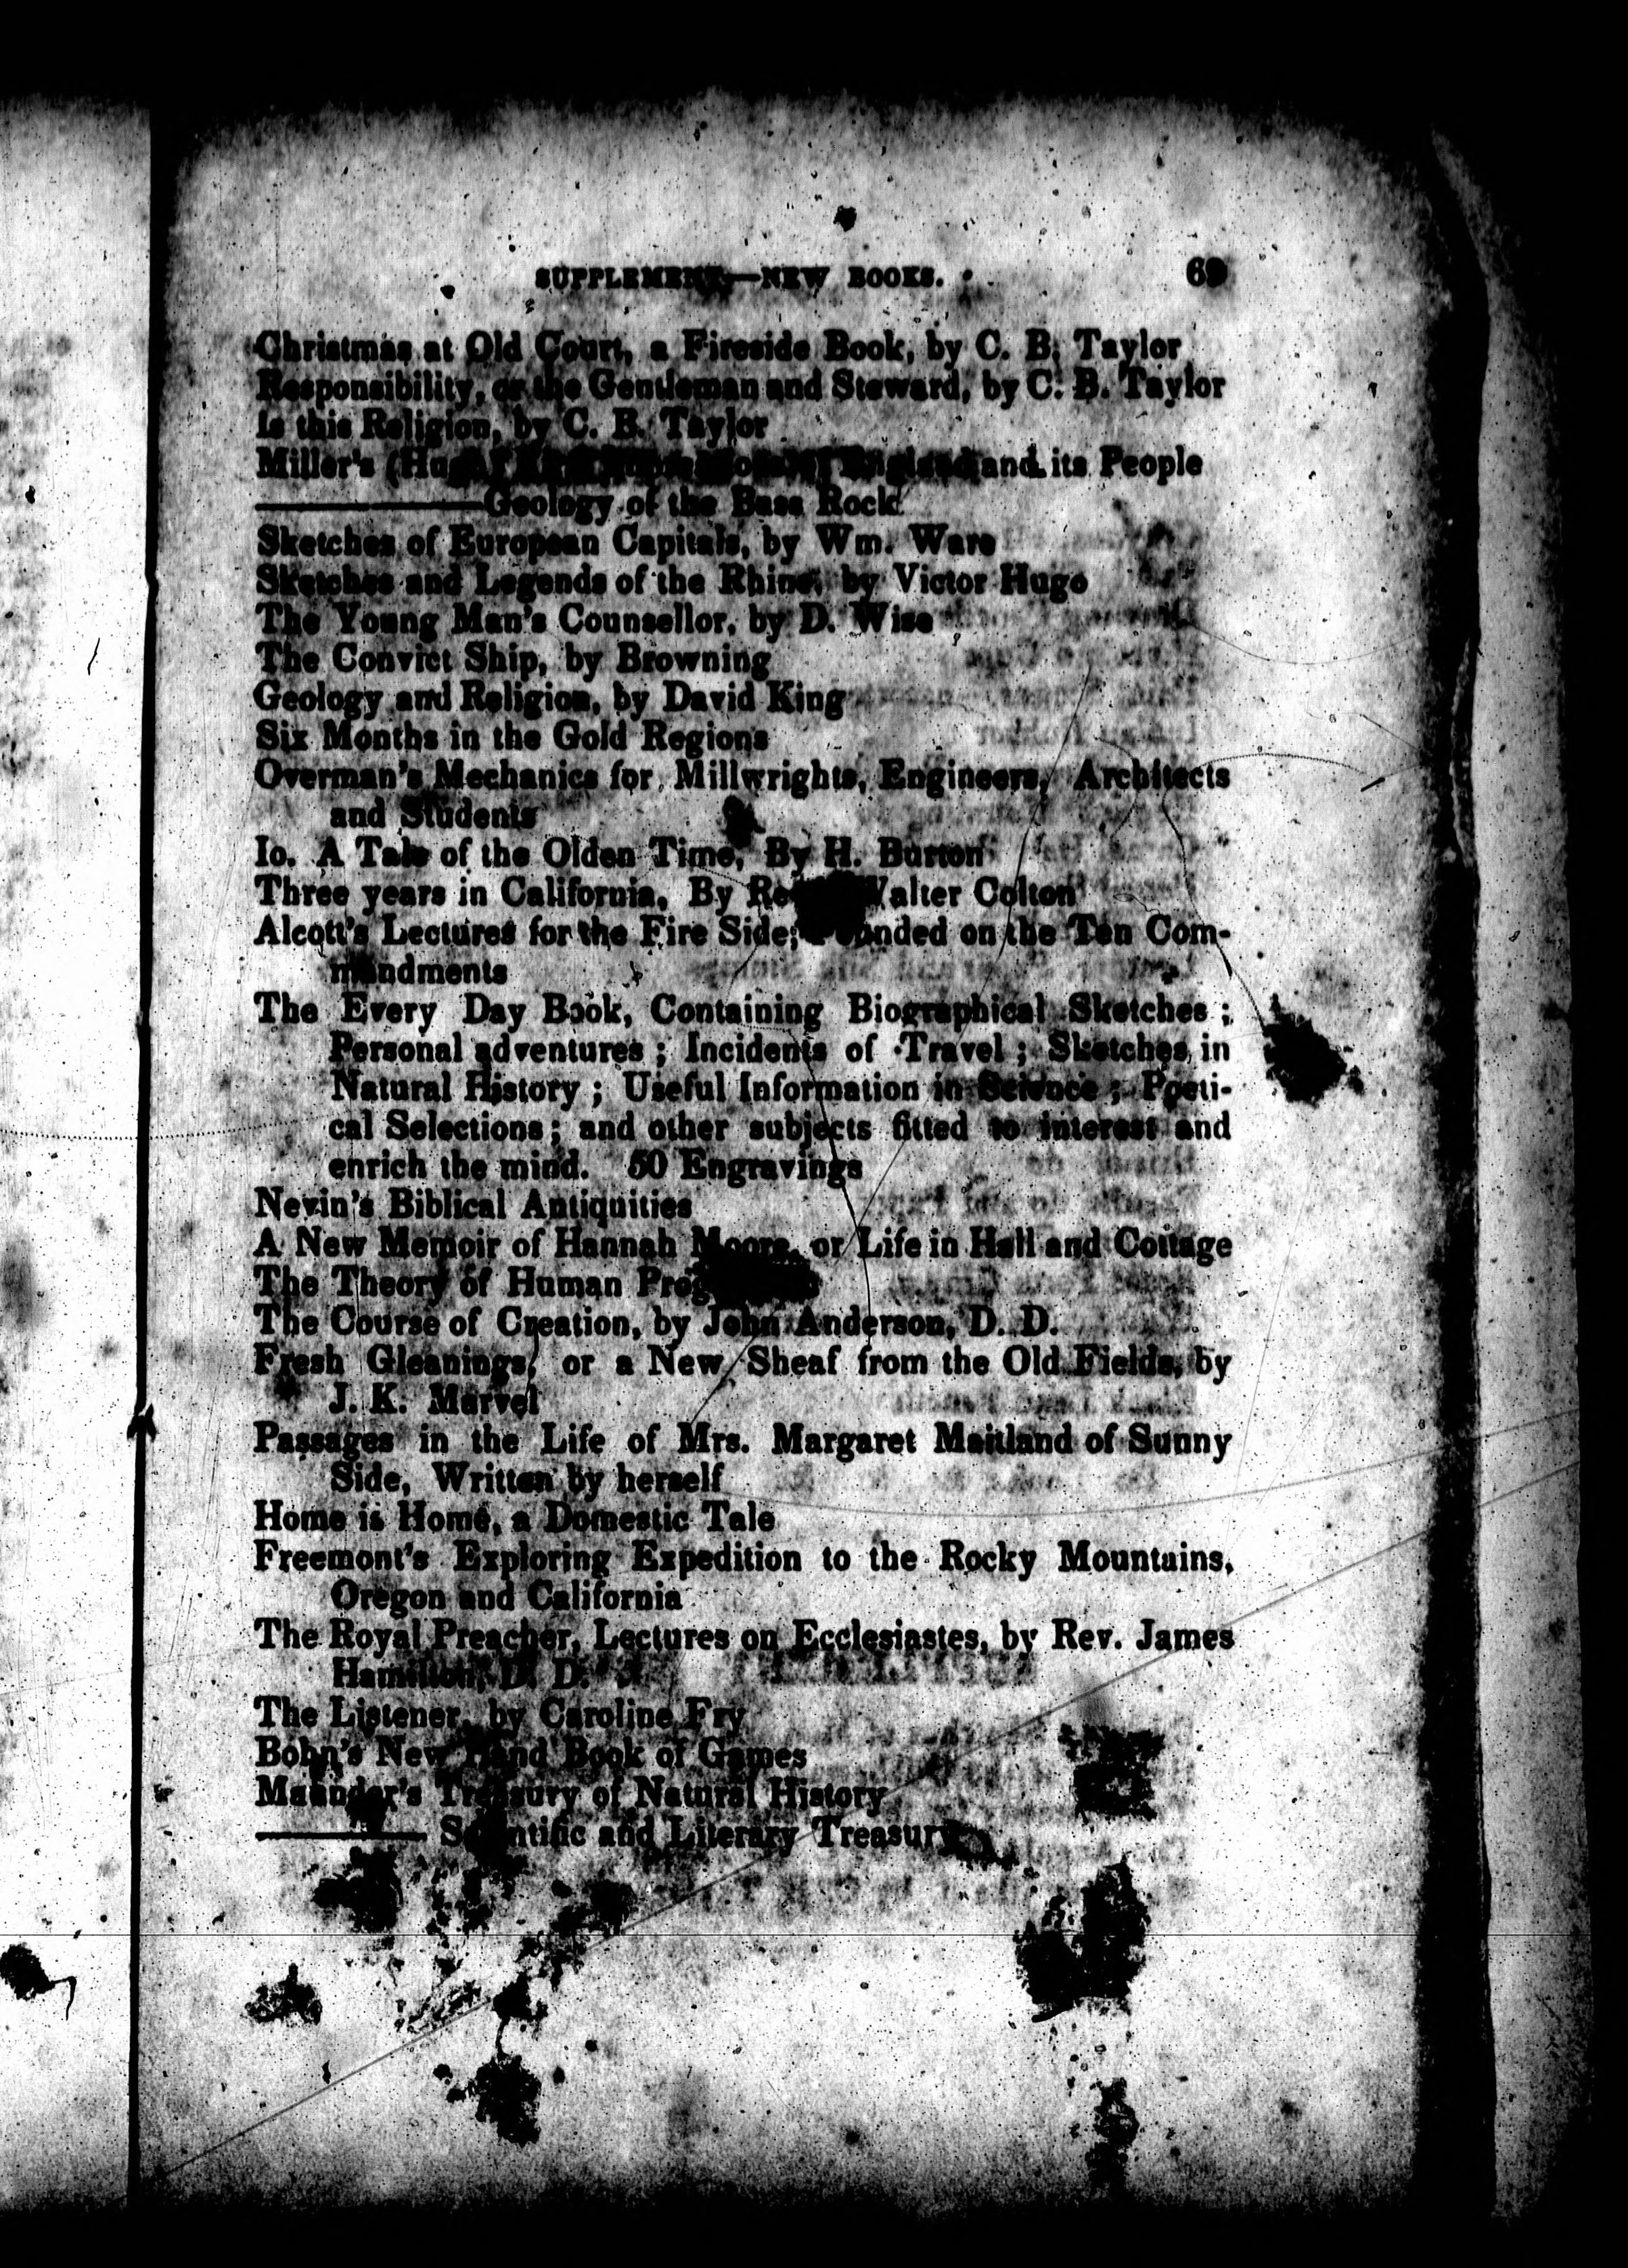 SUPPLEMENT—NEW BOOKS. 69
Christmas at Old Court, a Fireside Book, by C. B. Taylor
Responsibility, or the Gentleman and Steward, by C. B. Taylor
Is this Religion, by C. B. Taylor
Miller's England and its People
————Geology of the Bass Rock
Sketches of European Capitals, by Wm. Ware
Sketches and Legends of the Rhine, by Victor Hugo
The Young Man's Counsellor, by D. Wise
The Convict Ship, by Browning
Geology and Religion, by David King
Six Months in the Gold Regions
Overman's Mechanics for Millwrights, Engineers, Architects
and Students
Io. A Tale of the Olden Time, By H. Burton
Three years in California, By Walter Colton
Alcott's Lectures for the Fire Side; on the Ten Com-
mandments
The Every Day Book, Containing Biographical Sketches ;
Personal adventures ; Incidents of Travel ; Sketches in
Natural History ; Useful Information in Science ; Poeti-
cal Selections ; and other subjects fitted to interest and
enrich the mind. 50 Engravings
Nevin's Biblical Antiquities
A New Memoir of Hannah Moore, or Life in Hall and Cottage
The Theory of Human
The Course of Creation, by John Anderson, D. D.
Fresh Gleanings, or a New Sheaf from the Old Fields, by
J. K. Marvel
Passages in the Life of Mrs. Margaret Maitland of Sunny
Side, Written by herself
Home is Home, a Domestic Tale
Freemont's Exploring Expedition to the Rocky Mountains,
Oregon and California
The Royal Preacher, Lectures on Ecclesiastes, by Rev. James
Hamilton, D. D.
The Listener, by Caroline Fry
Bohn's New Hand Book of Games
Maunder's Treasury of Natural History
———— Scientific and Literary Treasury